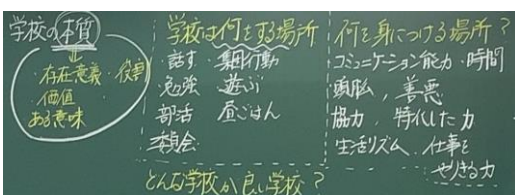 学校の本質
・存在意義・役割
・価値
ある意味
学校は何をする場所
・話す・集団行動
勉強 遊ぶ
部活 昼ごはん
委員会
何を身につける場所?
コミュニケーション能力・時間
頭脳, 善悪
協力, 特化した力
生活リズム, 仕事を
やりきる力
どんな学校が良い学校?